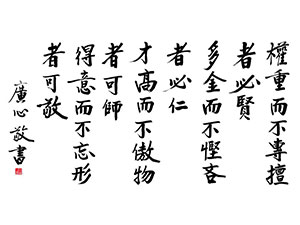 權重而不專擅
者必賢
多金而不慳吝
者必仁
才高而不傲物
者可師
得意而不忘形
者可敬
廣心敬書